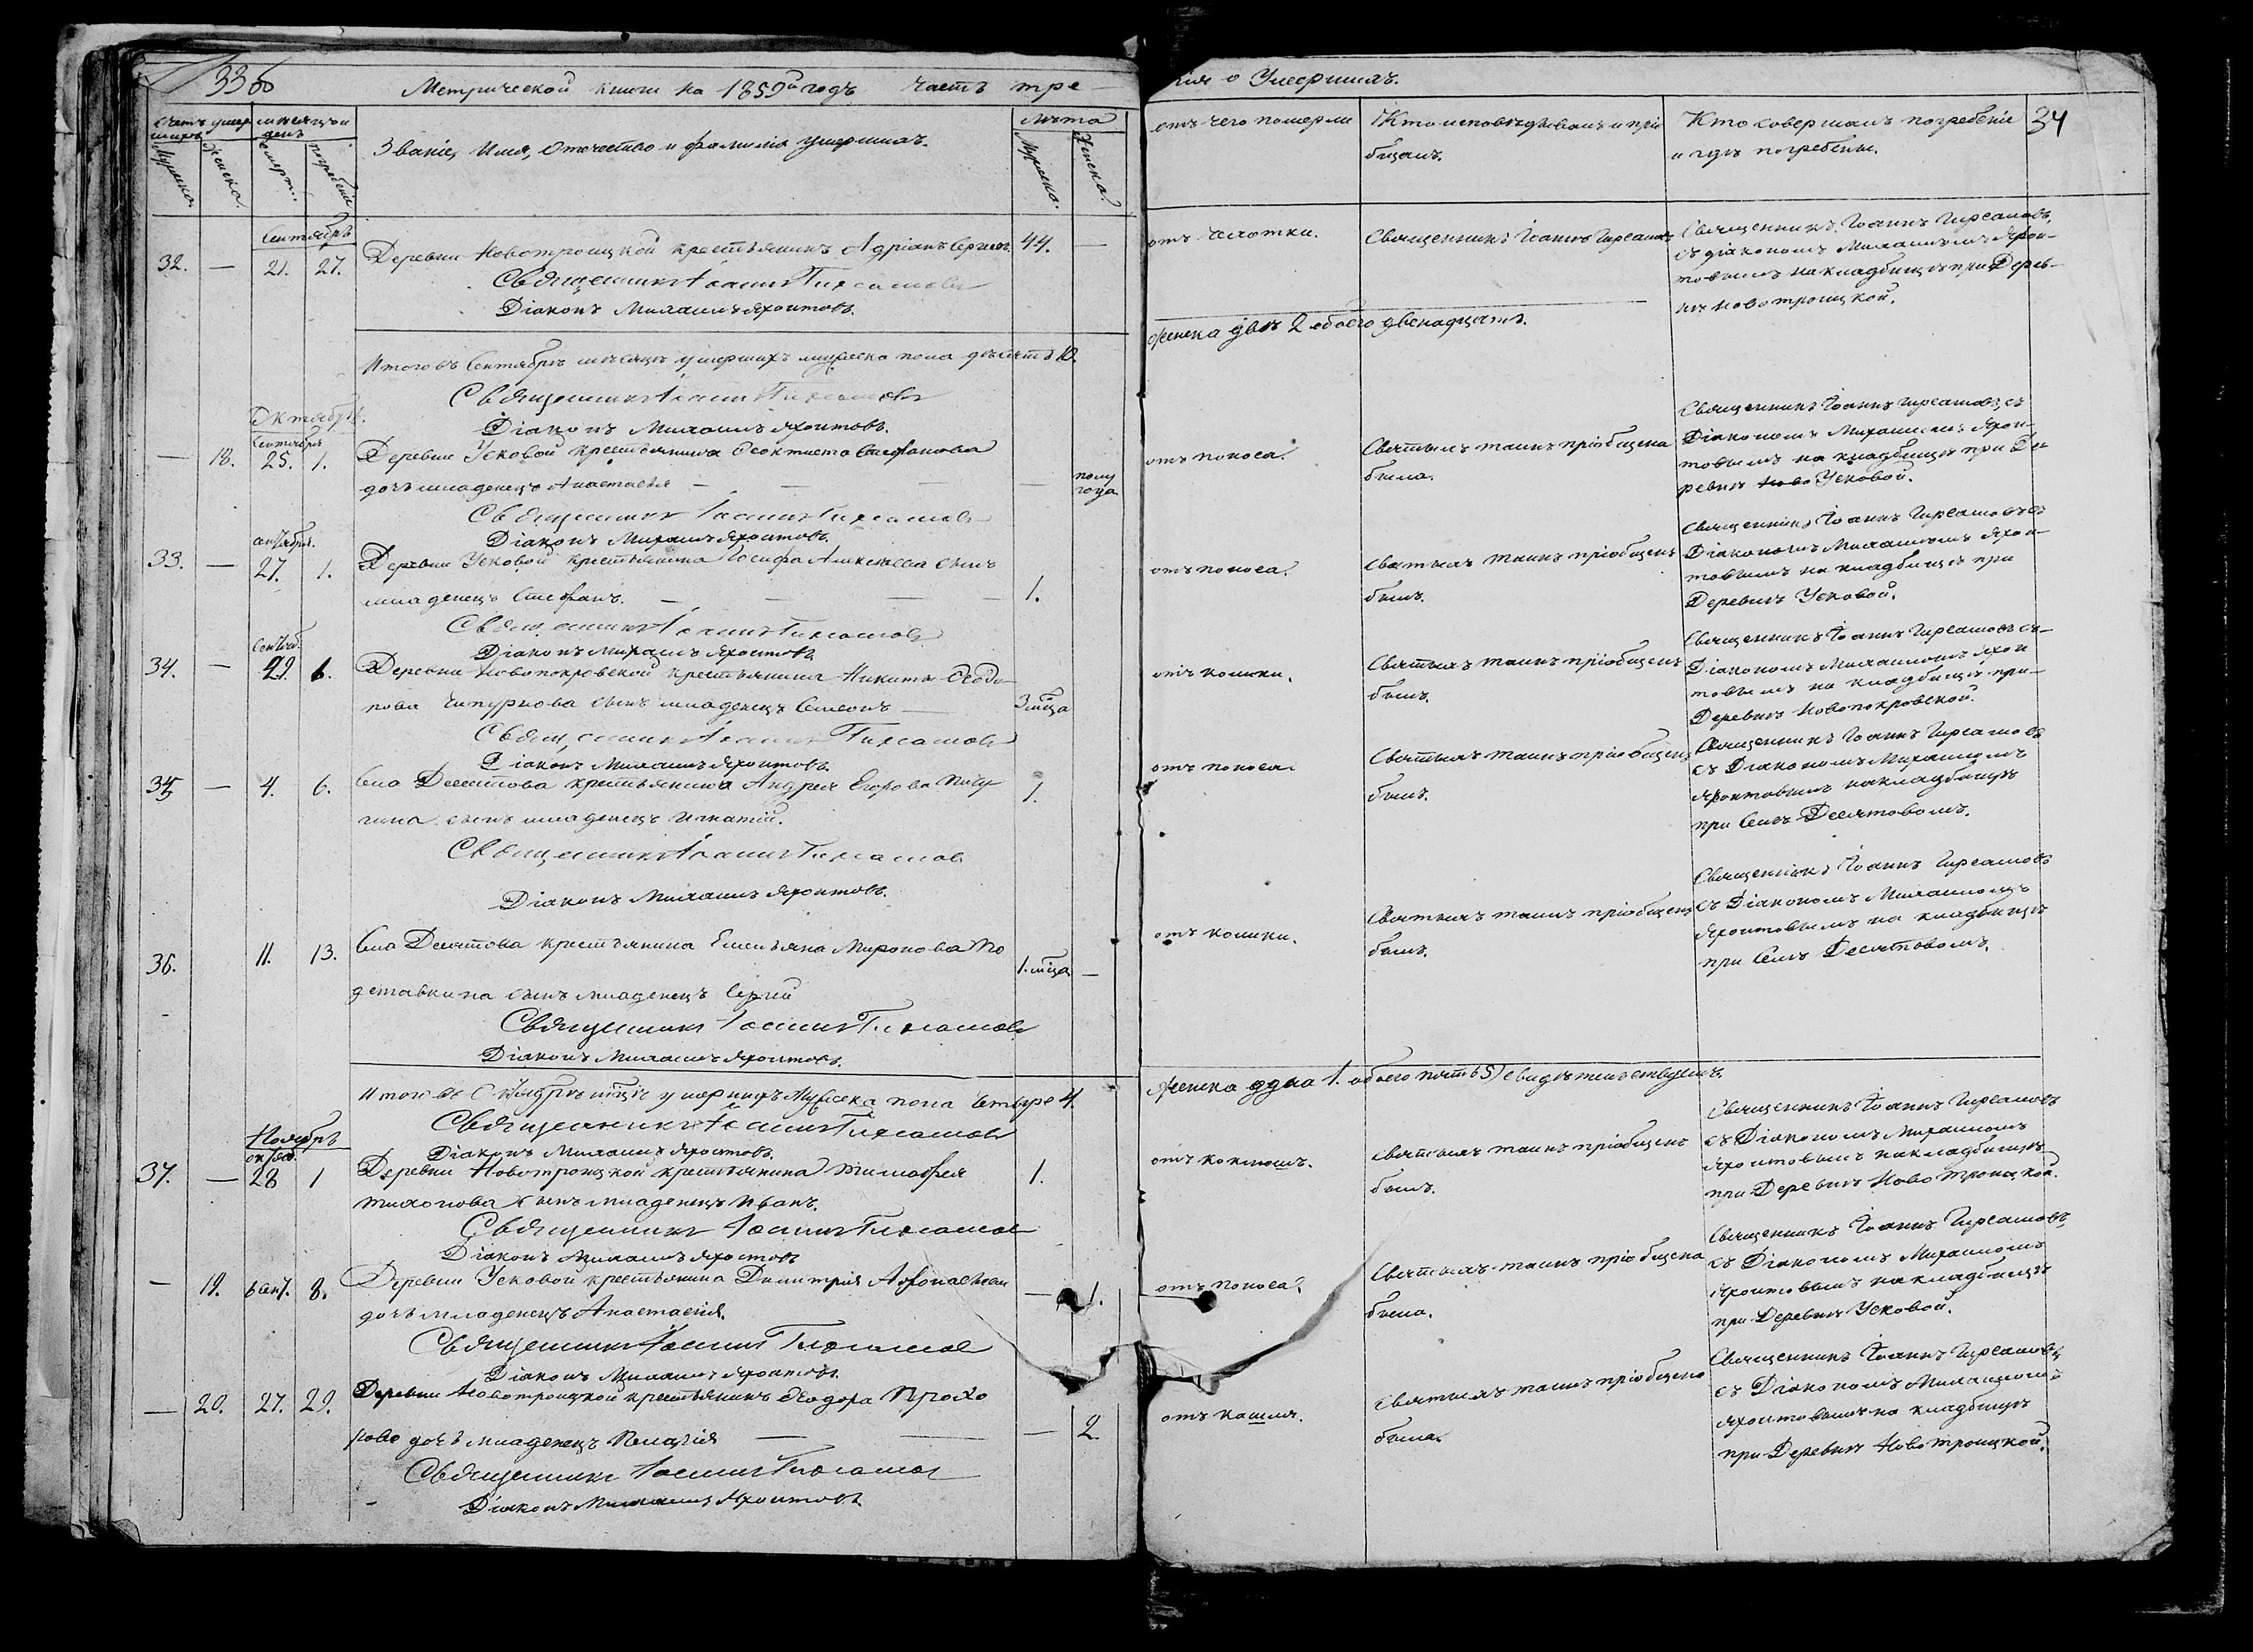 33об
Метрической книги на 1859й годъ часть тре
Счетъ умер
шихъ
мѣсяцъ и
день
Звание, Имя, Отечество и фамилія умершихъ.
Лѣта
Мужеска.
Женска.
смерт.
погребенія
Мужеска.
Женска.
Сентябрь
32. — 21. 27. Деревни Новотроицкой крестьянинъ Адріанъ 44. —
Священникъ Іоаннъ
Діаконъ Михаилъ Яхонтовъ.
Итого въ Сентябрѣ мѣсяцѣ умершихъ мужеска пола десять 10.
Священникъ Іоаннъ
Діаконъ Михаилъ Яхонтовъ.
Октябрь.
Сентября
— 18. 25. 1. Деревни Усковой крестьянина Феоктиста Стефанова
дочь младенецъ Анастасія — — — полу
года
Священникъ Іоаннъ
Діаконъ Михаилъ Яхонтовъ.
33. — 27. 1. Деревни Усковой крестьянина Іосифа Алексѣева сынъ
младенецъ Стефанъ. — — — — 1.
Священникъ Іоаннъ
Діаконъ Михаилъ Яхонтовъ
Сентяб.
34. — 29. 6. Деревни Новопокровской крестьянина Никиты Ѳеодо
нова Чипурнова сынъ младенецъ Симеонъ — 3 мца
Священникъ Іоаннъ
Діаконъ Михаилъ Яхонтовъ.
35 — 4. 6. Села Десятова крестьянина Андрея Егорова Пичу
гина сынъ младенецъ Игнатій. 1.
Священникъ Іоаннъ
Діаконъ Михаилъ Яхонтовъ.
36. 11. 13. Села Десятова крестьянина Емельяна Миронова По
деталкина сынъ младенецъ Сергій 1. мца —
Священникъ Іоаннъ
Діаконъ Михаилъ Яхонтовъ.
Итого въ Октябрѣ мцѣ умершихъ Мужеска пола четыре 4.
Священникъ Іоаннъ
Діаконъ Михаилъ Яхонтовъ.
Ноябрь
37. — 28 1 Деревни Новотроицкой крестьянина Тимофея 1.
Тихонова сынъ младенецъ Иванъ.
Священникъ Іоаннъ
Діаконъ Михаилъ Яхонтовъ
— 19. 8. Деревни Усковой крестьянина Димитрія Афонасьева — 1.
дочь младенецъ Анастасія.
Священникъ Іоаннъ
Діаконъ Михаилъ Яхонтовъ.
— 20. 27. 29. Деревни Новотроицкой крестьянинъ Ѳеодора Прохо
рова дочь младенецъ Пелагія — — — 2.
Священникъ Іоаннъ
Діаконъ Михаилъ Яхонтовъ.
тія о Умершихъ.
отъ чего померли
Кто исповѣдывалъ и прі
бщалъ.
Кто совершалъ погребеніе
и гдѣ погребены.
34
отъ чахотки.
Священникъ Іоаннъ
Священникъ Іоаннъ
съ діакономъ Михаиломъ Яхон-
товымъ на кладбищѣ при Дерев-
нѣ Новотроицкой.
женска двѣ 2 обоего двенадцать.
отъ поноса.
Святыхъ таинъ пріобщена
была.
Священникъ Іоаннъ съ
Діакономъ Михаиломъ Яхон-
товымъ на кладбищѣ при Де
ревнѣ Ново Усковой.
отъ поноса.
Святыхъ таинъ пріобщенъ
былъ.
Священникъ Іоаннъ съ
Діакономъ Михаиломъ Яхон-
товымъ на кладбищѣ при
Деревнѣ Усковой.
отъ колики.
Святыхъ таинъ пріобщенъ
былъ.
Священникъ Іоаннъ съ
Діакономъ Михаиломъ Яхон
товымъ на кладбищѣ при
Деревнѣ Новопокровской.
отъ поноса.
Святыхъ таинъ пріобщенъ
былъ.
Священникъ Іоаннъ
съ Діакономъ Михаиломъ
Яхонтовымъ на кладбищѣ
при Селѣ Десятовомъ.
отъ колики.
Святыхъ таинъ пріобщенъ
былъ.
Священникъ Іоаннъ
съ Діакономъ Михаиломъ
Яхонтовымъ на кладбищѣ
при Селѣ Десятовомъ.
женска одна 1. обоего пять 5) свидѣтельствуемъ.
отъ коклюшъ.
Святыхъ таинъ пріобщенъ
былъ.
Священникъ Іоаннъ
съ Діакономъ Михаиломъ
Яхонтовымъ на кладбищѣ
при Деревнѣ Новотроицкой.
отъ поноса.
Святыхъ таинъ пріобщена
была.
Священникъ Іоаннъ
съ Діакономъ Михаиломъ
Яхонтовымъ на кладбищѣ
при Деревнѣ Усковой.
отъ кашля.
Святыхъ таинъ пріобщена
была.
Священникъ Іоаннъ
съ Діакономъ Михаиломъ
Яхонтовымъ на кладбищѣ
при Деревнѣ Новотроицкой.